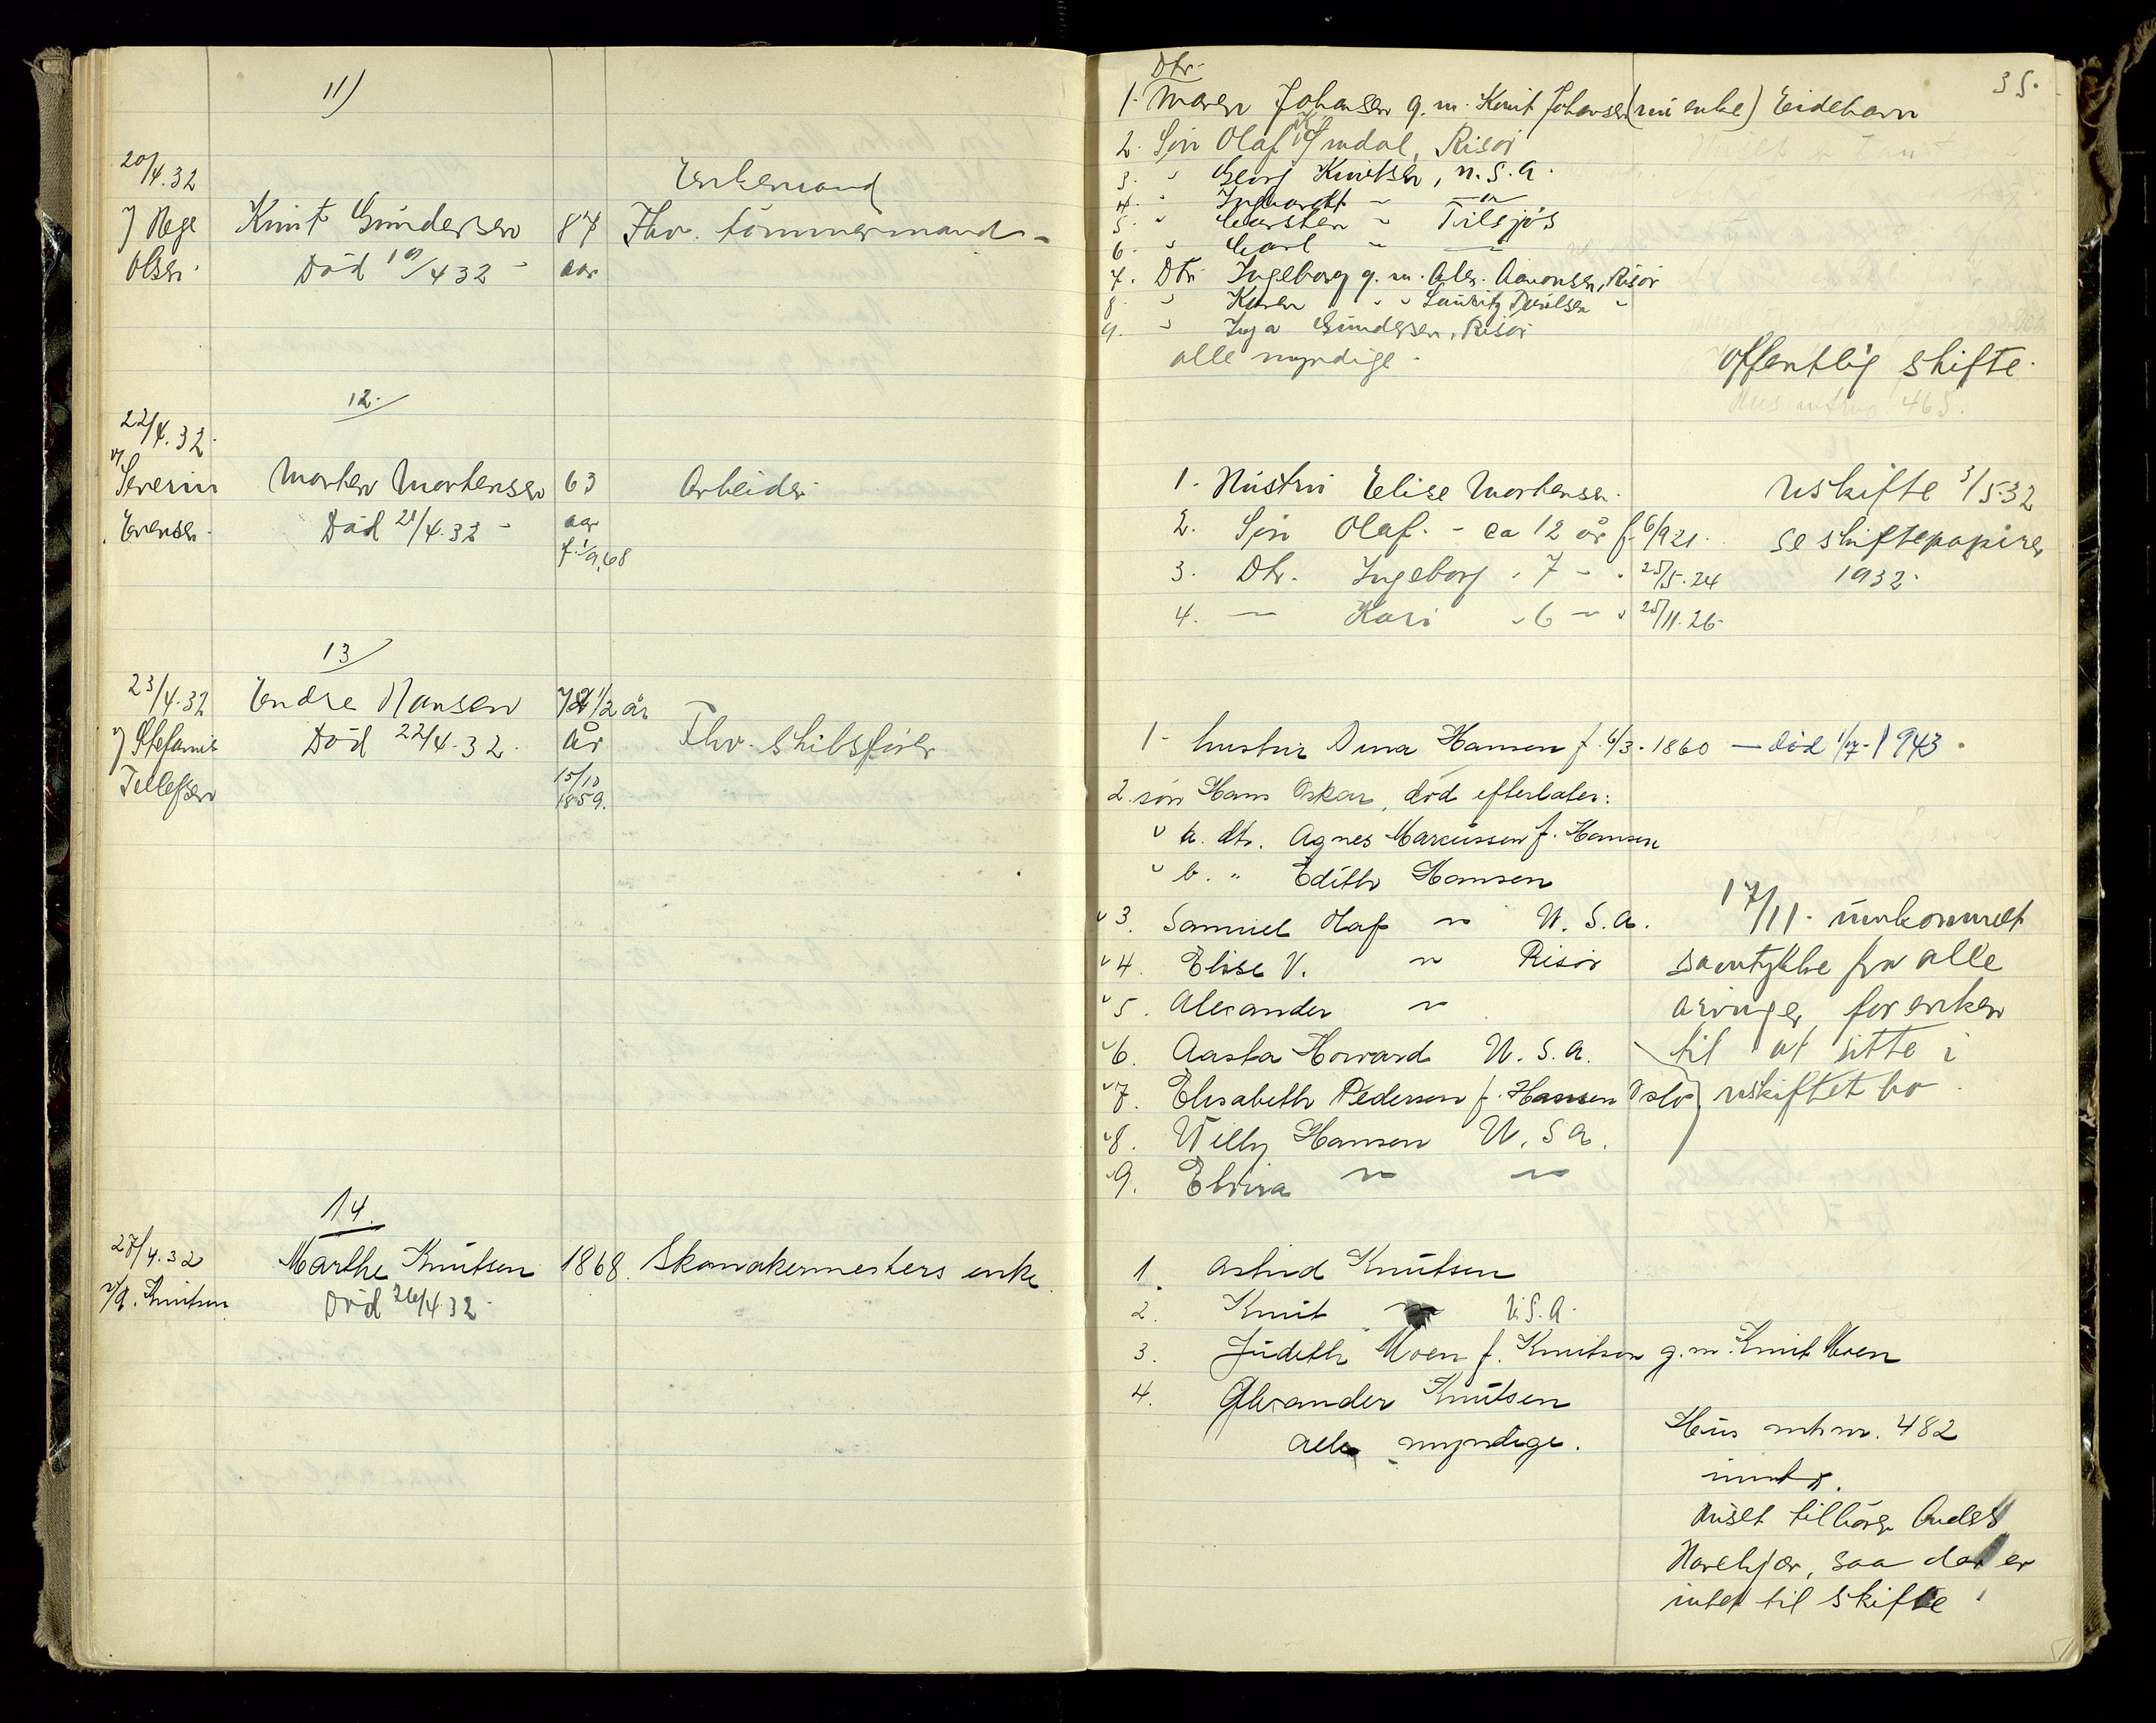 35.
11)
20/4.32
v/ Aage
Olsen.
Knut Gundersen
Död 19/4 32 -
87
aar
Enkemand
Fhv. tömmermand -
Dtr.
1. Maren Johansen g. m. Knut Johansen (nu enke) Eidehavn
2. Sön Olaf K. Omdal, Risör
3. " Georg Knutsen, U.S.A.
4. " Ingvardt " —"—
5. " Carsten " Tilsjös
6. " Carl " —"—
7. Dtr. Ingeborg g. m. Alex. Aanonsen, Risör
8. " Karen " " Lauritz Danielsen "
9. " Inga Gundersen, Risör
alle myndige.
Offentlig skifte.
Hus mtr no 465.
12.
22/4.32.
v/
Severin
Evensen.
Morten Mortensen
Död 21/4.32 -
63
aar
f. 1/9.68
Arbeider
1. Hustru Elise Mortensen.
2. Sön Olaf. - ca 12 år f. 6/9 21.
3. Dtr. Ingeborg " 7 - " 25/5.24
4. — Kari " 6 - " 25/11.26.
Uskifte 3/5 32
se skiftepapirer
1932.
13
23/4.32
v/ Stefanus
Tellefsen
Endre Hansen
Död 22/4.32.
72 1/2 år
år
15/10
1859.
Fhv. skibsförer
1. hustru Dina Hansen f. 6/3. 1860 — död 1/7-1943.
2. sön Hans Oskar, död efterlater:
v a. dtr. Agnes Marcussen f. Hansen
v b. " Edith Hansen
v 3. Samuel Olaf " U.S.A.
v 4. Elise V. " Risör
v 5. Alexander "
v 6. Aasta Howard U.S.A.
v 7. Elisabeth Pedersen f. Hansen Oslo
v 8. Willy Hansen U.S.A.
v 9. Elvira " "
17/11. innkommet
samtykke fra alle
arvinger for enken
til at sitte i
uskiftet bo.
14.
27/4.32
v/A. Knutsen.
Marthe Knutsen
Död 26/4 32.
1868.
Skomakermesters enke.
1. Astrid Knutsen
2. Knut " U.S.A.
3. Judith Moen f. Knutsen g. m. Knut Moen
4. Alexander Knutsen
alle myndige.
Hus mtr no. 482
Huset tilhörer
saa der er
intet til skifte